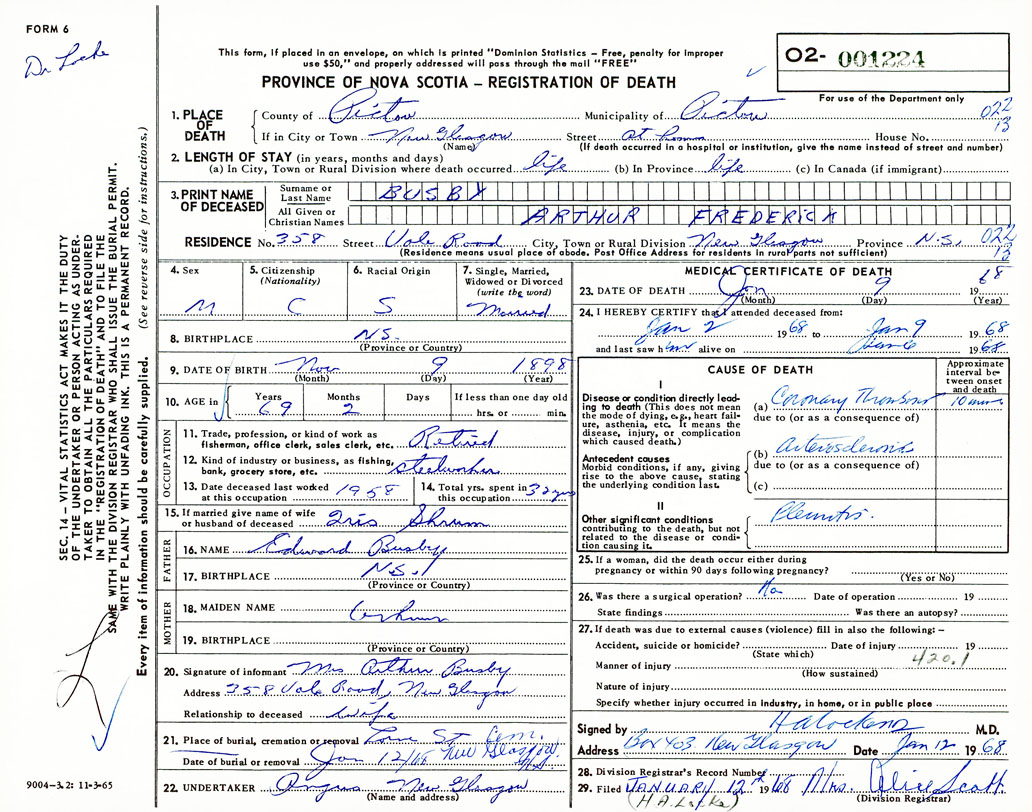 FORM 6
Dr Locke
This form, if placed in an envelope, on which is printed "Dominion Statistics – Free, penalty for improper
use $50," and properly addressed will pass through the mail "FREE"
PROVINCE OF NOVA SCOTIA – REGISTRATION OF DEATH
02- 001224
For use of the Department only
1. PLACE OF DEATH
County of Pictou Municipality of Pictou 022
If in City or Town New Glasgow Street at home House No. 13
(Name) (If death occurred in a hospital or institution, give the name instead of street and number)
2. LENGTH OF STAY (in years, months and days)
(a) In City, Town or Rural Division where death occurred life (b) In Province life (c) In Canada (if immigrant)
3. PRINT NAME OF DECEASED
Surname or Last Name BUSBY
All Given or Christian Names ARTHUR FREDERICK
RESIDENCE No. 358 Street Vale Road City, Town or Rural Division New Glasgow Province N.S. 022
(Residence means usual place of abode. Post Office Address for residents in rural parts not sufficient) 13
4. Sex M
5. Citizenship (Nationality) C
6. Racial Origin S
7. Single, Married, Widowed or Divorced (write the word) Married
8. BIRTHPLACE N.S.
(Province or Country)
9. DATE OF BIRTH Nov 9 1898
(Month) (Day) (Year)
10. AGE in Years 69 Months 2 Days If less than one day old hrs. or min.
OCCUPATION
11. Trade, profession, or kind of work as fisherman, office clerk, sales clerk, etc. Retired
12. Kind of industry or business, as fishing, bank, grocery store, etc. steelworker
13. Date deceased last worked at this occupation 1958
14. Total yrs. spent in this occupation 32 yrs
15. If married give name of wife or husband of deceased Iris Shrum
FATHER
16. NAME Edward Busby
17. BIRTHPLACE N.S.
(Province or Country)
MOTHER
18. MAIDEN NAME
19. BIRTHPLACE
(Province or Country)
20. Signature of informant Mrs Arthur Busby
Address 358 Vale Road, New Glasgow
Relationship to deceased Wife
21. Place of burial, cremation or removal St Cem.
Date of burial or removal Jan 12/68 New Glasgow
22. UNDERTAKER Angus New Glasgow
(Name and address)
MEDICAL CERTIFICATE OF DEATH
23. DATE OF DEATH Jan 9 19 68
(Month) (Day) (Year)
24. I HEREBY CERTIFY that I attended deceased from:
Jan 2 19 68 to Jan 9 19 68
and last saw him alive on Jan 6 19 68
CAUSE OF DEATH
Approximate interval between onset and death
I
Disease or condition directly leading to death (This does not mean the mode of dying, e.g., heart failure, asthenia, etc. It means the disease, injury, or complication which caused death.)
(a) Coronary Thrombosis 10 mins
due to (or as a consequence of)
Antecedent causes
Morbid conditions, if any, giving rise to the above cause, stating the underlying condition last.
(b) Arteriosclerosis
due to (or as a consequence of)
(c)
II
Other significant conditions contributing to the death, but not related to the disease or condition causing it.
Pleuritis.
25. If a woman, did the death occur either during
pregnancy or within 90 days following pregnancy?
(Yes or No)
26. Was there a surgical operation? No Date of operation 19
State findings Was there an autopsy?
27. If death was due to external causes (violence) fill in also the following: –
Accident, suicide or homicide? Date of injury 19
(State which)
Manner of injury 420.1
(How sustained)
Nature of injury
Specify whether injury occurred in Industry, in home, or in public place
Signed by M.D.
Address Box 403 New Glasgow Date Jan 12 19 68
28. Division Registrar's Record Number
29. Filed JANUARY 12th 1968 Mrs. Alice Scott
(Division Registrar)
SEC. 14 – VITAL STATISTICS ACT MAKES IT THE DUTY
OF THE UNDERTAKER OR PERSON ACTING AS UNDER-
TAKER TO OBTAIN ALL THE PARTICULARS REQUIRED
IN THE "REGISTRATION OF DEATH" AND TO FILE THE
SAME WITH THE DIVISION REGISTRAR WHO SHALL ISSUE THE BURIAL PERMIT.
WRITE PLAINLY WITH UNFADING INK. THIS IS A PERMANENT RECORD.
Every item of information should be carefully supplied. (See reverse side for instructions.)
9004-3.2: 11-3-65